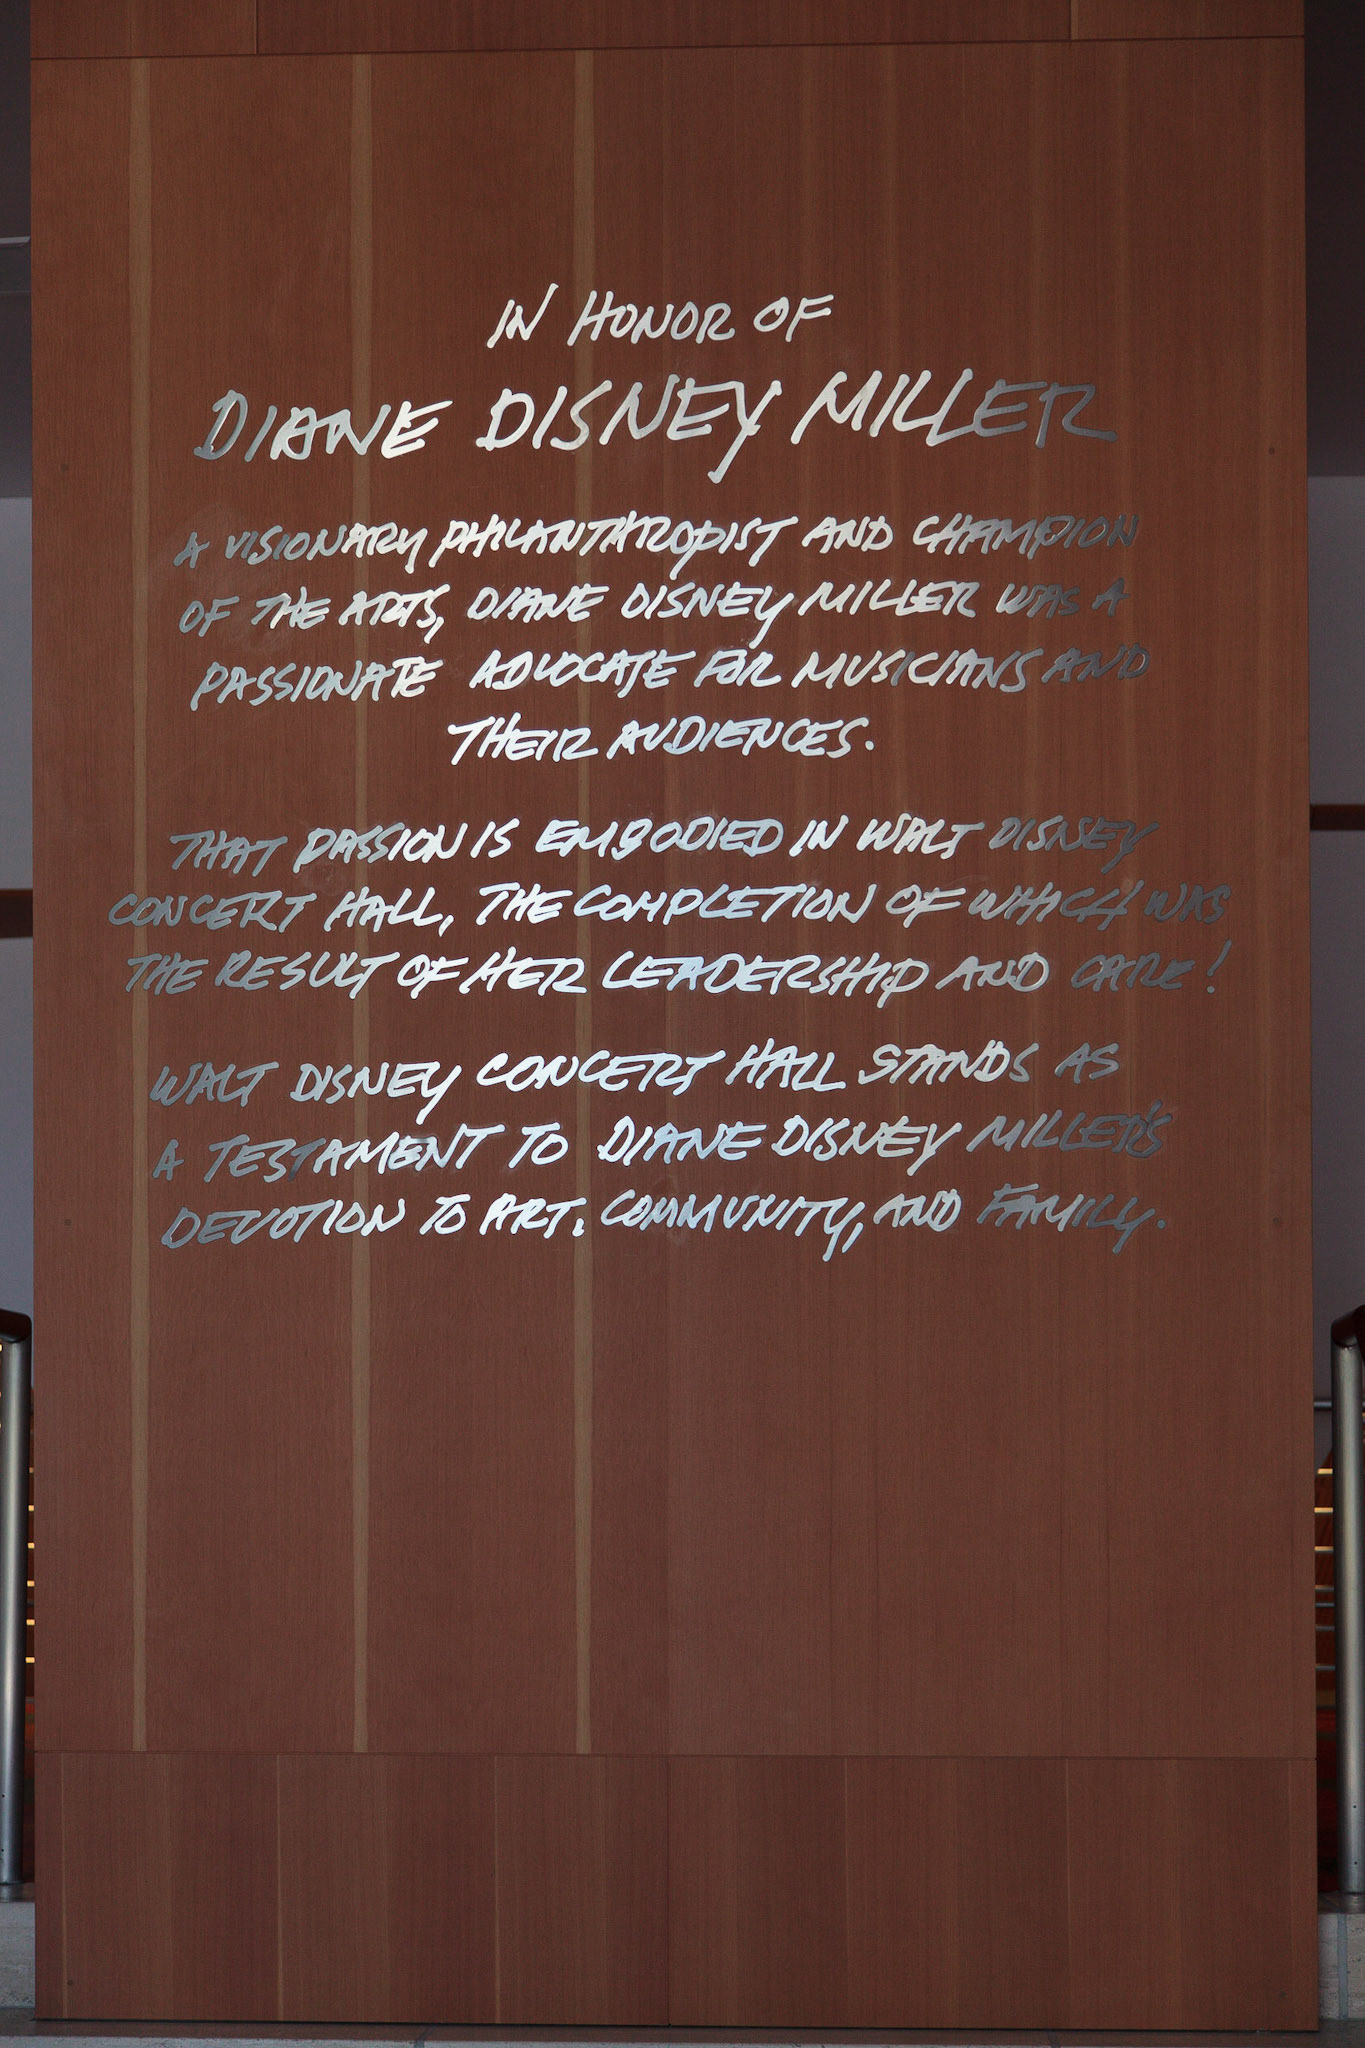 IN HONOR OF
DIANE DISNEY MILLER
A VISIONARY PHILANTHROPIST AND CHAMPION
OF THE ARTS, DIANE DISNEY MILLER WAS A
PASSIONATE ADVOCATE FOR MUSICIANS AND
THEIR AUDIENCES.
THAT PASSION IS EMBODIED IN WALT DISNEY
CONCERT HALL, THE COMPLETION OF WHICH WAS
THE RESULT OF HER LEADERSHIP AND CARE!
WALT DISNEY CONCERT HALL STANDS AS
A TESTAMENT TO DIANE DISNEY MILLER'S
DEVOTION TO ART, COMMUNITY, AND FAMILY.